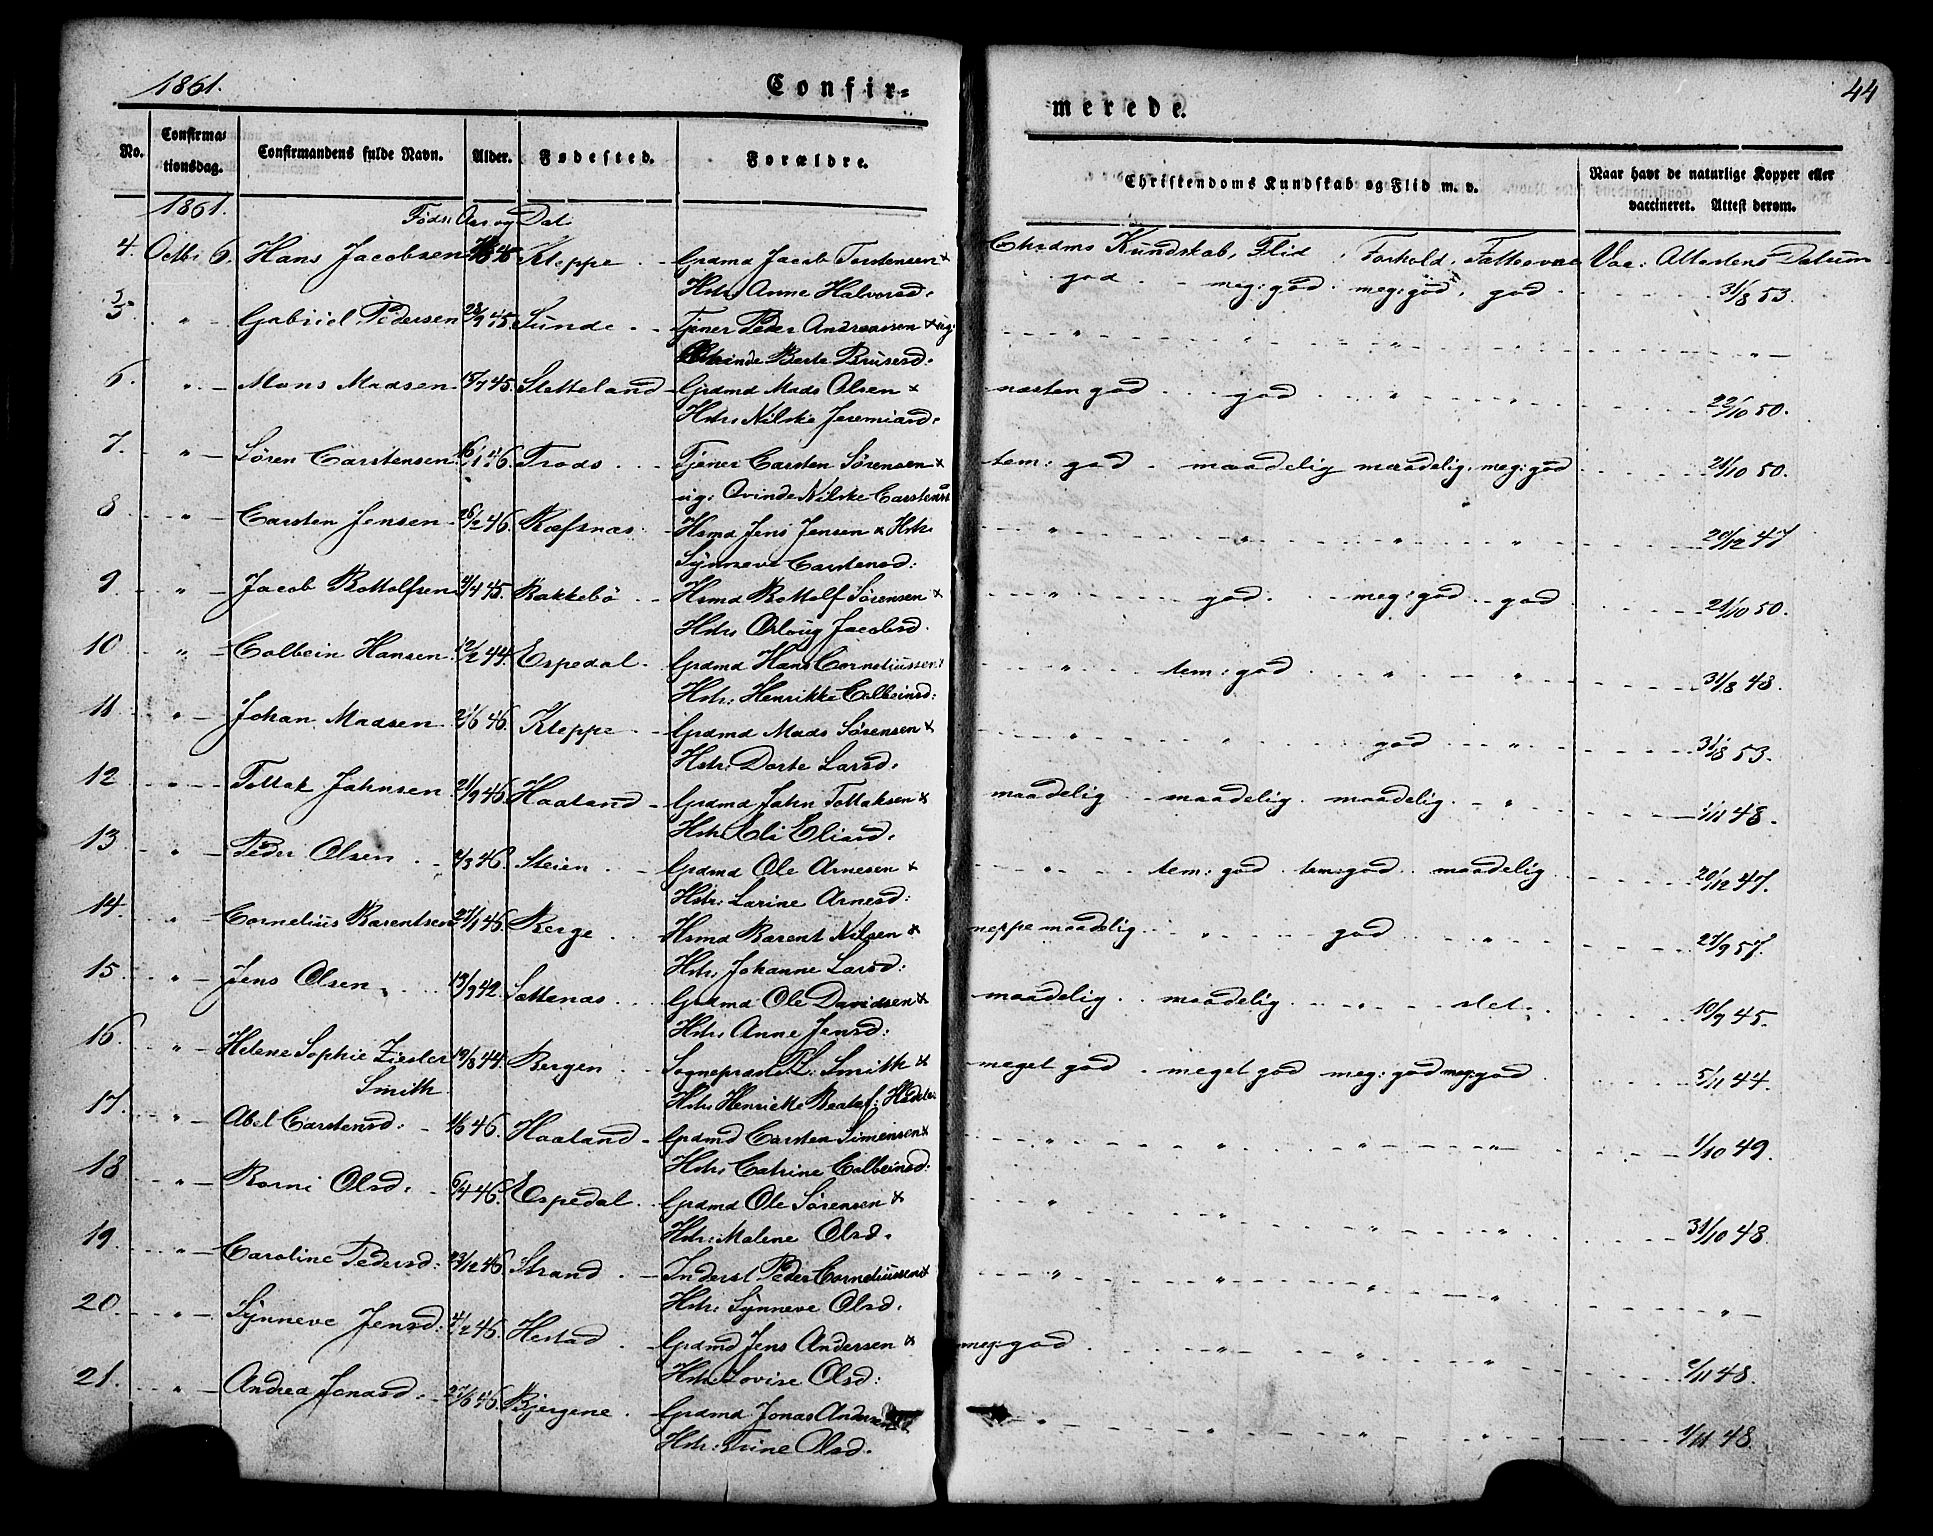 1861.
Confir=
merede.
44
No.
Confirma=
tionsdag.
Confirmandens fulde Navn.
Alder.
Fødested.
Forældre.
Christendoms Kundskab og Flid m. v.
Naar havt de naturlige Kopper eller
vaccineret. Attest derom.
1861. Føds: Aar og Dat.
Chrdms Kundskab, Flid, Forhold, Fatteevne Vac: Attestens Datum
4. Octbr 6. Hans Jacobsen Kleppe Grdmd Jacob Torstensen god meg: god meg: god, god 31/8 53.
Hstr: Anne Halvorsd:
5 " Gabriel Pedersen 28/9 45. Sunde Tjener Peder Andreassen ug: " " " "
Qvinde Berte Brusesd:
6. " Mons Madsen 15/7 45. Stetteland Grdmd Mads Olsen næsten god god " " 22/10 50.
Hstr: Nilske Jeremiasd:
7. " Søren Carstensen 16/1 46. Trods Tjener Carsten Sørensen tem: god maadelig maadelig meg: god 21/10 50.
ug: Qvinde Nilske Carstensd
8 " Carsten Jensen 26/2 46. Ræfsnæs Hsmd Jens Jensen Hstr " " " " 20/12 47
Synneve Carstensd:
9 " Jacob Bottolfsen 4/4 45. Bakkebø Hsmd Bottolf Sørensen " god. meg: god god 21/10 50.
Hstr: Orloug Jacobsd.
10 " Colbein Hansen 12/2 44. Espedal Grdmd Hans Corneliussen " tem: god " " 31/8 48.
Hstr: Henrikke Colbeinsd:
11 " Johan Madsen 21/6 46. Kleppe Grdmd Mads Sørensen " " god " 31/8 53.
Hstr: Dorte Larsd:
12 " Tollak Johnsen 21/9 46. Haaland Grdmd John Tollaksen maadelig maadelig. maadelig " 1/11 48.
Hstr: Eli Eliasd:
13 " Peder Olsen 2/3 46. Steien Grdmd Ole Arnesen " tem: god tem: god maadelig 20/12 47.
Hstr: Larine Arnesd:
14. " Cornelius Barentsen 21/1 46. Berge Hsmd Barent Nilsen neppe maadelig " god " 27/9 57.
Hstr: Johanne Larsd:
15. " Jens Olsen 13/9 42. Sættenæs Grdmd Ole Davidsen maadelig maadelig " slet. 10/9 45.
Hstr: Anne Jensd:
16. " Helene Sophie Zierler 19/8 44. Bergen Sognepræst L: Smith meget god meget god meg: god meg: god 5/11 44.
Smith Hstr: Henriette Beate f:
17. " Abel Carstensd: 1/6 46. Haaland Grdmd Carsten Simensen " " " " 1/10 49.
Hstr: Catrine Colbeinsd:
18 " Borni Olsd: 6/4 46. Espedal Grdmd Ole Sørensen " " " " 31/10 48.
Hstr: Malene Olsd:
19. " Caroline Pedersd: 23/12 46 Strand Inderst Peder Corneliussen " " " " "
Hstr: Synneve Olsd.
20. " Synneve Jensd: 4/2 46. Hestad Grdmd Jens Andersen meg: god " " " 2/11 48.
Hstr: Lovise Olsd:
21. " Andrea Jonasd: 27/6 46. Bjergene Grdmd Jonas Andersen " " " " 1/11 48.
Hstr: Trine Olsd.